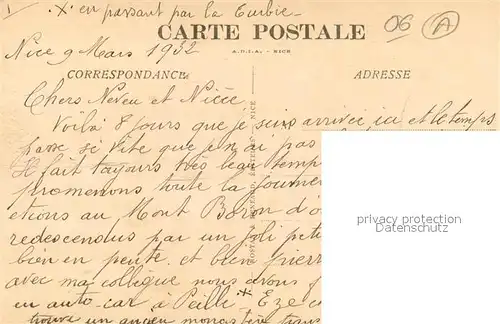 x en passant par la Turbie -
CARTE POSTALE
06 A
Nice 9 Mars 1932
A.D.I.A. - NICE
CORRESPONDANCE
ADRESSE
Chers Neveu et Nièce,
Voilà 8 jours que je suis arrivée ici et le temps
passe si vite que je n'ai pas
Il fait toujours très beau temp
promenons toute la journée
étions au Mont Boron d'o
redescendus par un joli peti
bien en pente et bien pierr
avec ma collègue nous avons f
en auto-car à Peille x Eze
trouve un ancien monastère trans
privacy protected
Datenschutz